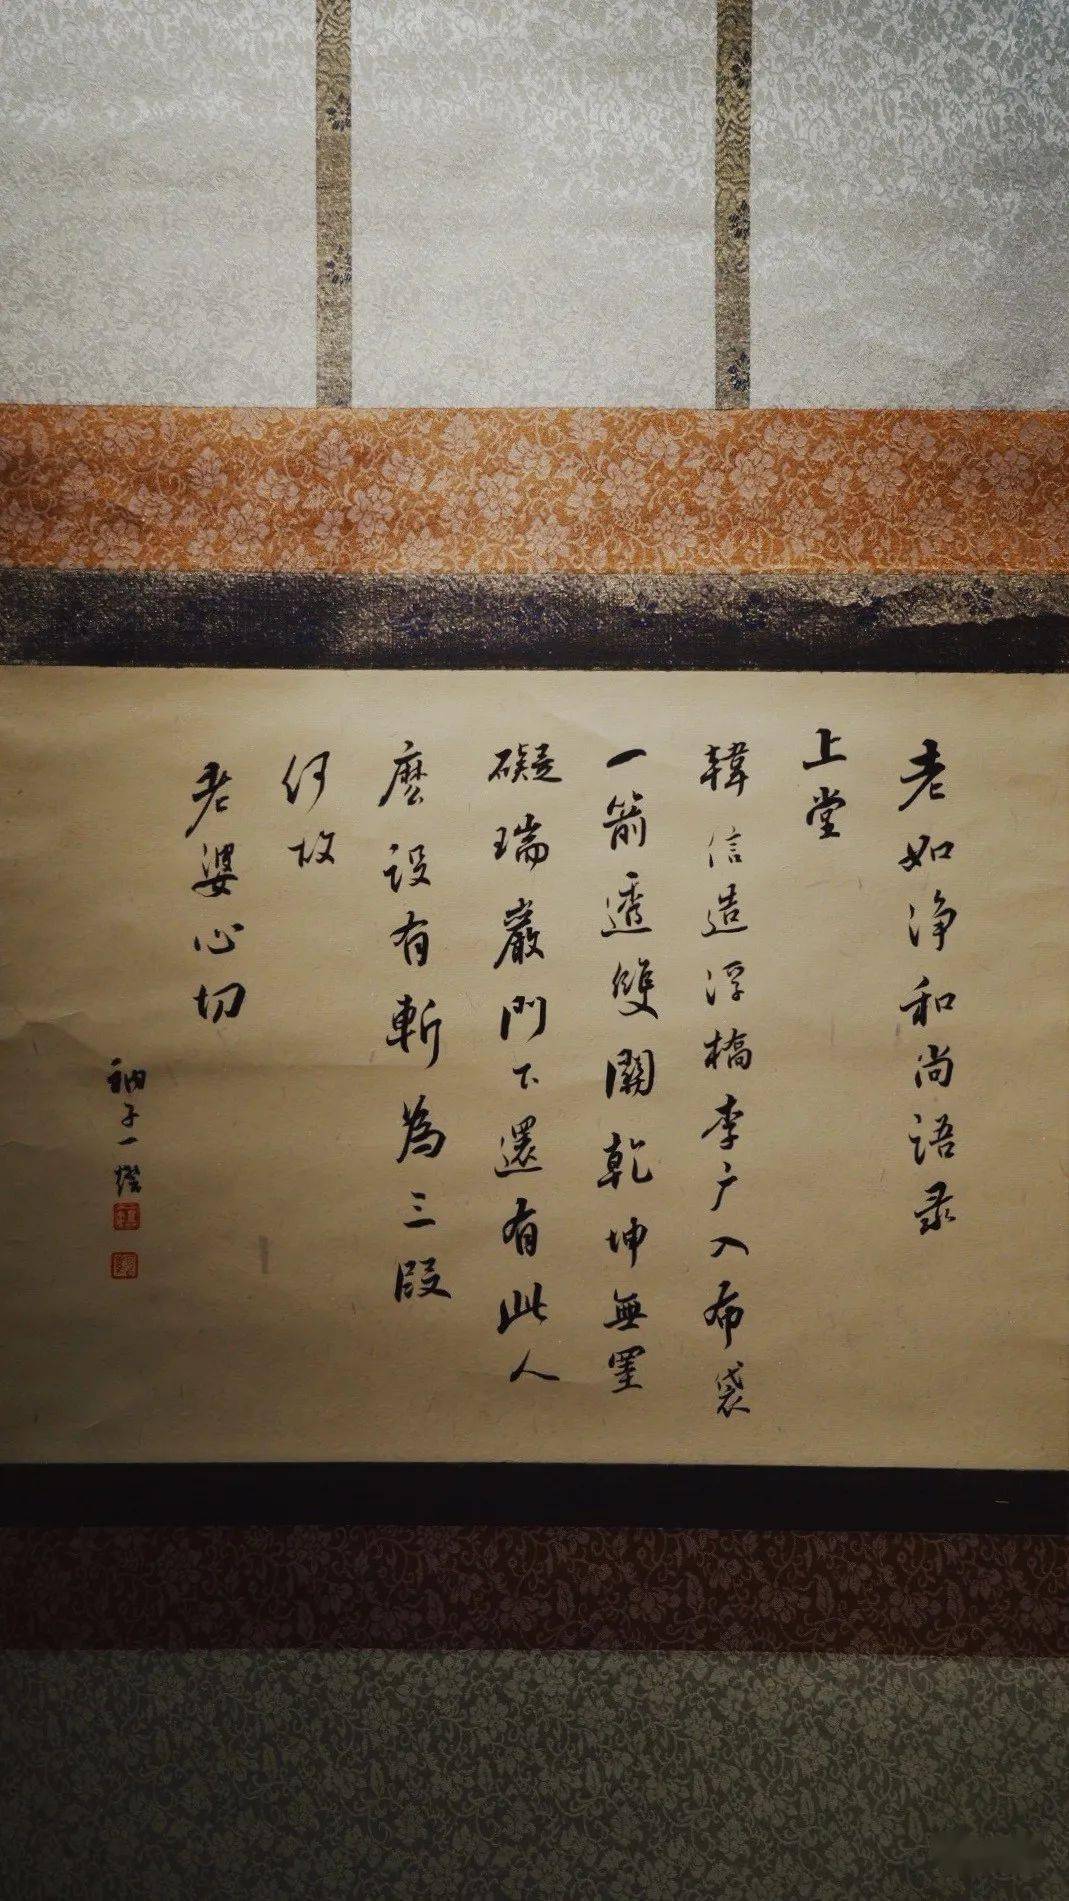 老如淨和尚语录
上堂
韓信造浮橋李广入布袋
一箭透雙關乾坤無罣
礙瑞巖門下還有此人
麼設有斬為三段
何故
老婆心切
衲子一